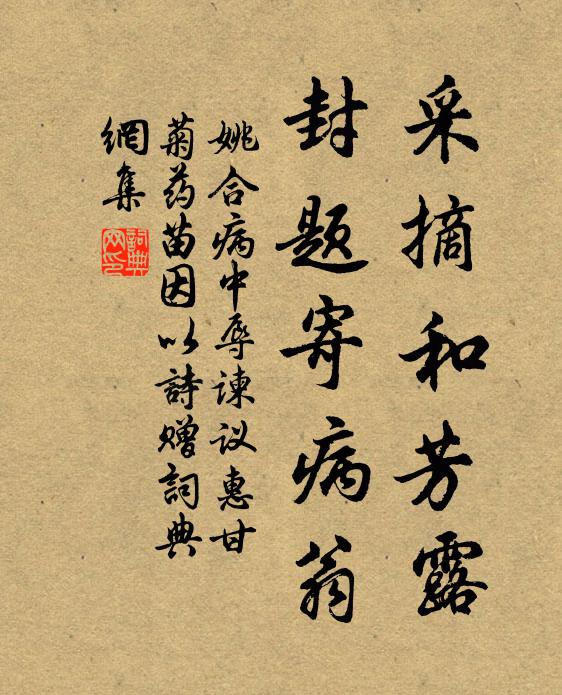 采摘和芳露
封题寄病翁
姚合病中辱谏议惠甘
菊药苗因以詩赠詞典
網集
詞典網印